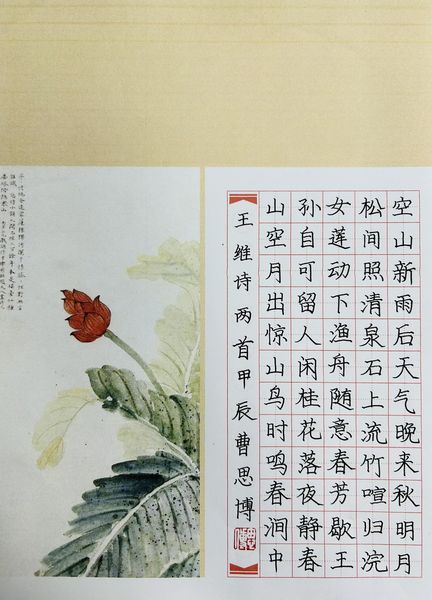 空山新雨后天气晚来秋明月
松间照清泉石上流竹喧归浣
女莲动下渔舟随意春芳歇王
孙自可留人闲桂花落夜静春
山空月出惊山鸟时鸣春涧中
王维诗两首甲辰曹思博